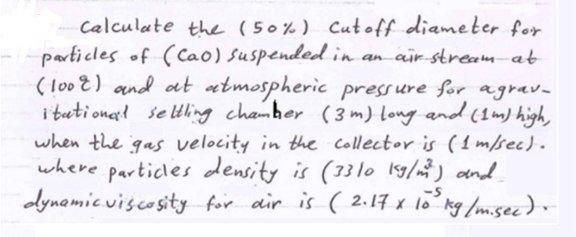 Calculate the (50%) cutoff diameter for
particles of (CaO) suspended in an air stream at
(100℃) and at atmospheric pressure for a grav-
itational settling chamber (3m) long and (1m) high,
when the gas velocity in the collector is (1m/sec).
where particles density is (3310 kg/m³) and
dynamic viscosity for air is (2.17 x 10⁻⁵ kg/m.sec).